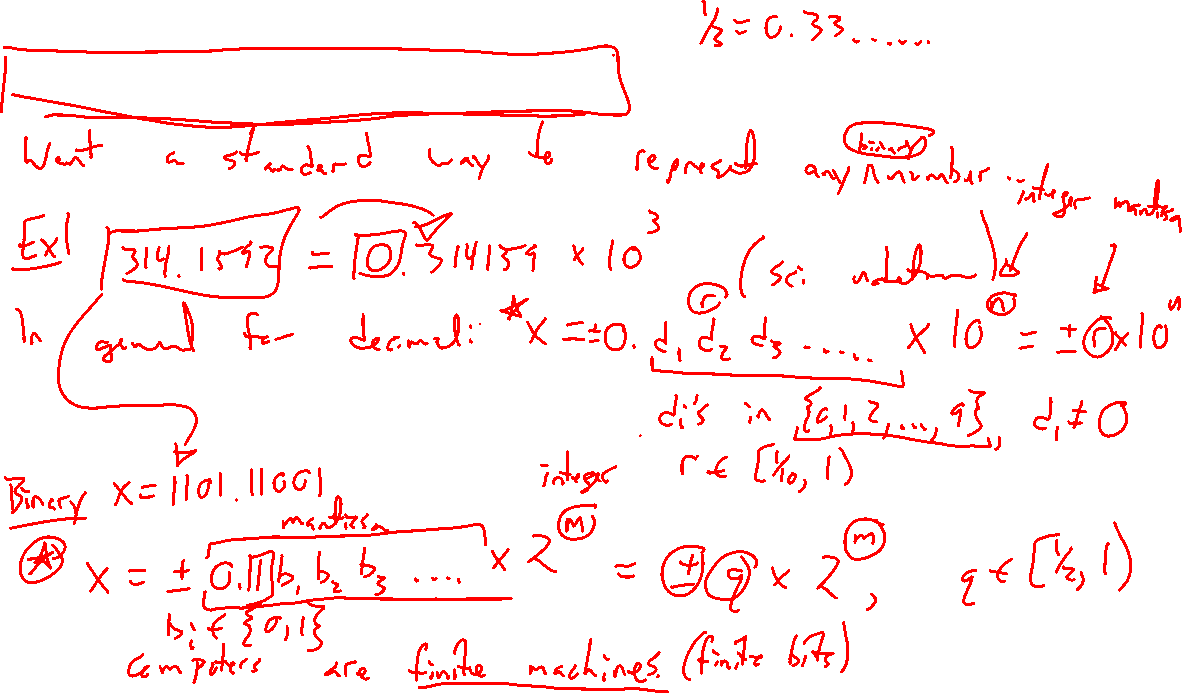 1/3 = 0.33......
Want a standard way to represent any ∧ binary number
Ex1 314.1592 = 0.314159 × 10^3 (sci notation) integer mantissa
In general for decimal: * x = ±0.d₁ d₂ d₃ ..... × 10^n = ± r × 10^n
r
di's in {0,1,2,...,9}, d₁ ≠ 0
r ∈ [1/10, 1)
Binary x = 1101.11001
mantissa integer
* x = ± 0.1 b₁ b₂ b₃ .... × 2^m = ± q × 2^m, q ∈ [1/2, 1)
bi ∈ {0,1}
Computers are finite machines. (finite bits)